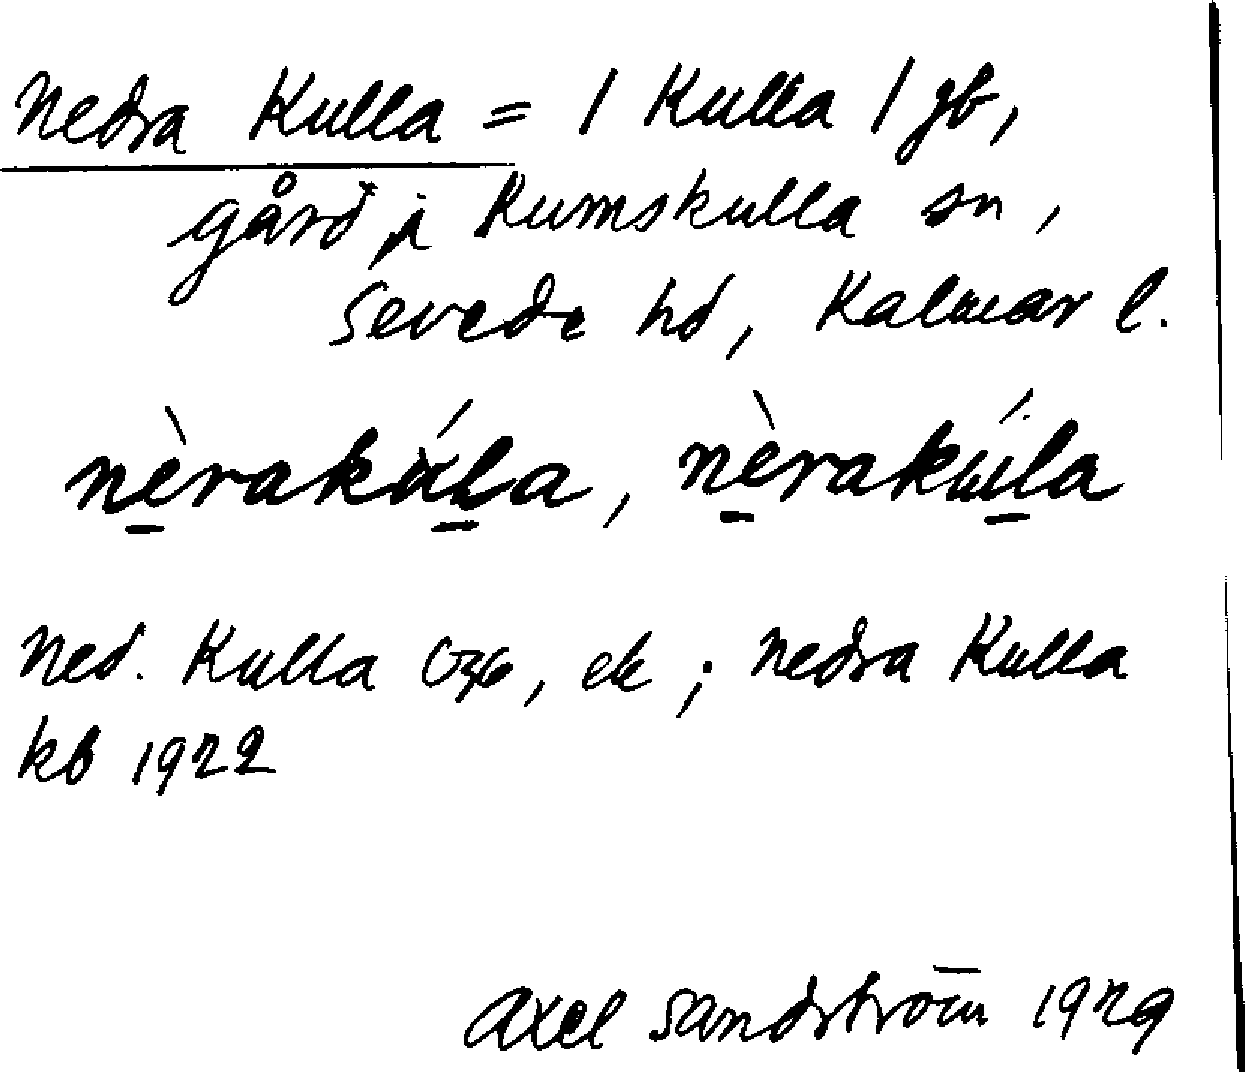 Nedra Kulla = 1 Kulla 1 jb,
gård i Rumskulla sn,
Sevede hd, Kalmar l.
nèrakúla, nèrakúla
Ned. Kulla G36, ek; Nedra Kulla
kb 1922
Axel Sandström 1929